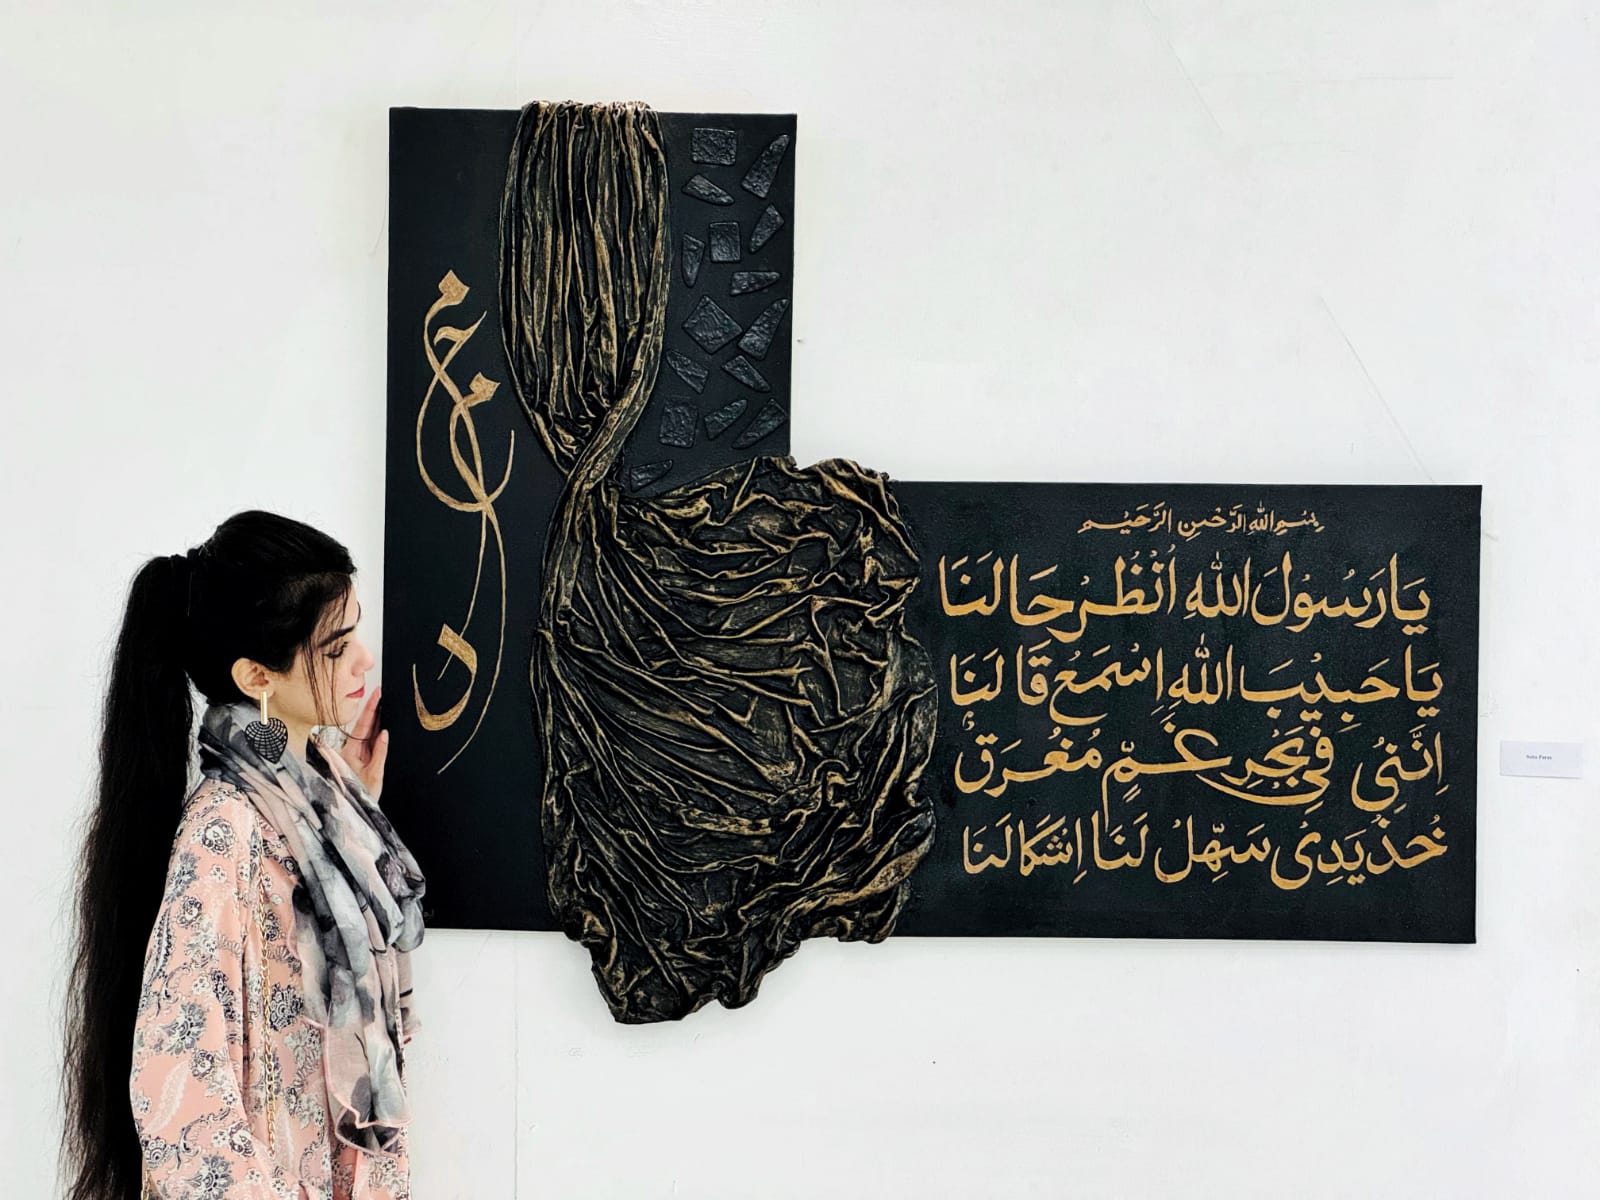 محمد
بِسْمِ اللهِ الرَّحْمٰنِ الرَّحِيْمِ
يَا رَسُوْلَ اللهِ اُنْظُرْ حَالَنَا
يَا حَبِيْبَ اللهِ اِسْمَعْ قَالَنَا
اِنَّنِیْ فِیْ بَحْرِ غَمٍّ مُغْرَقٌ
خُذْ يَدِیْ سَهِّلْ لَنَا اِشْكَالَنَا